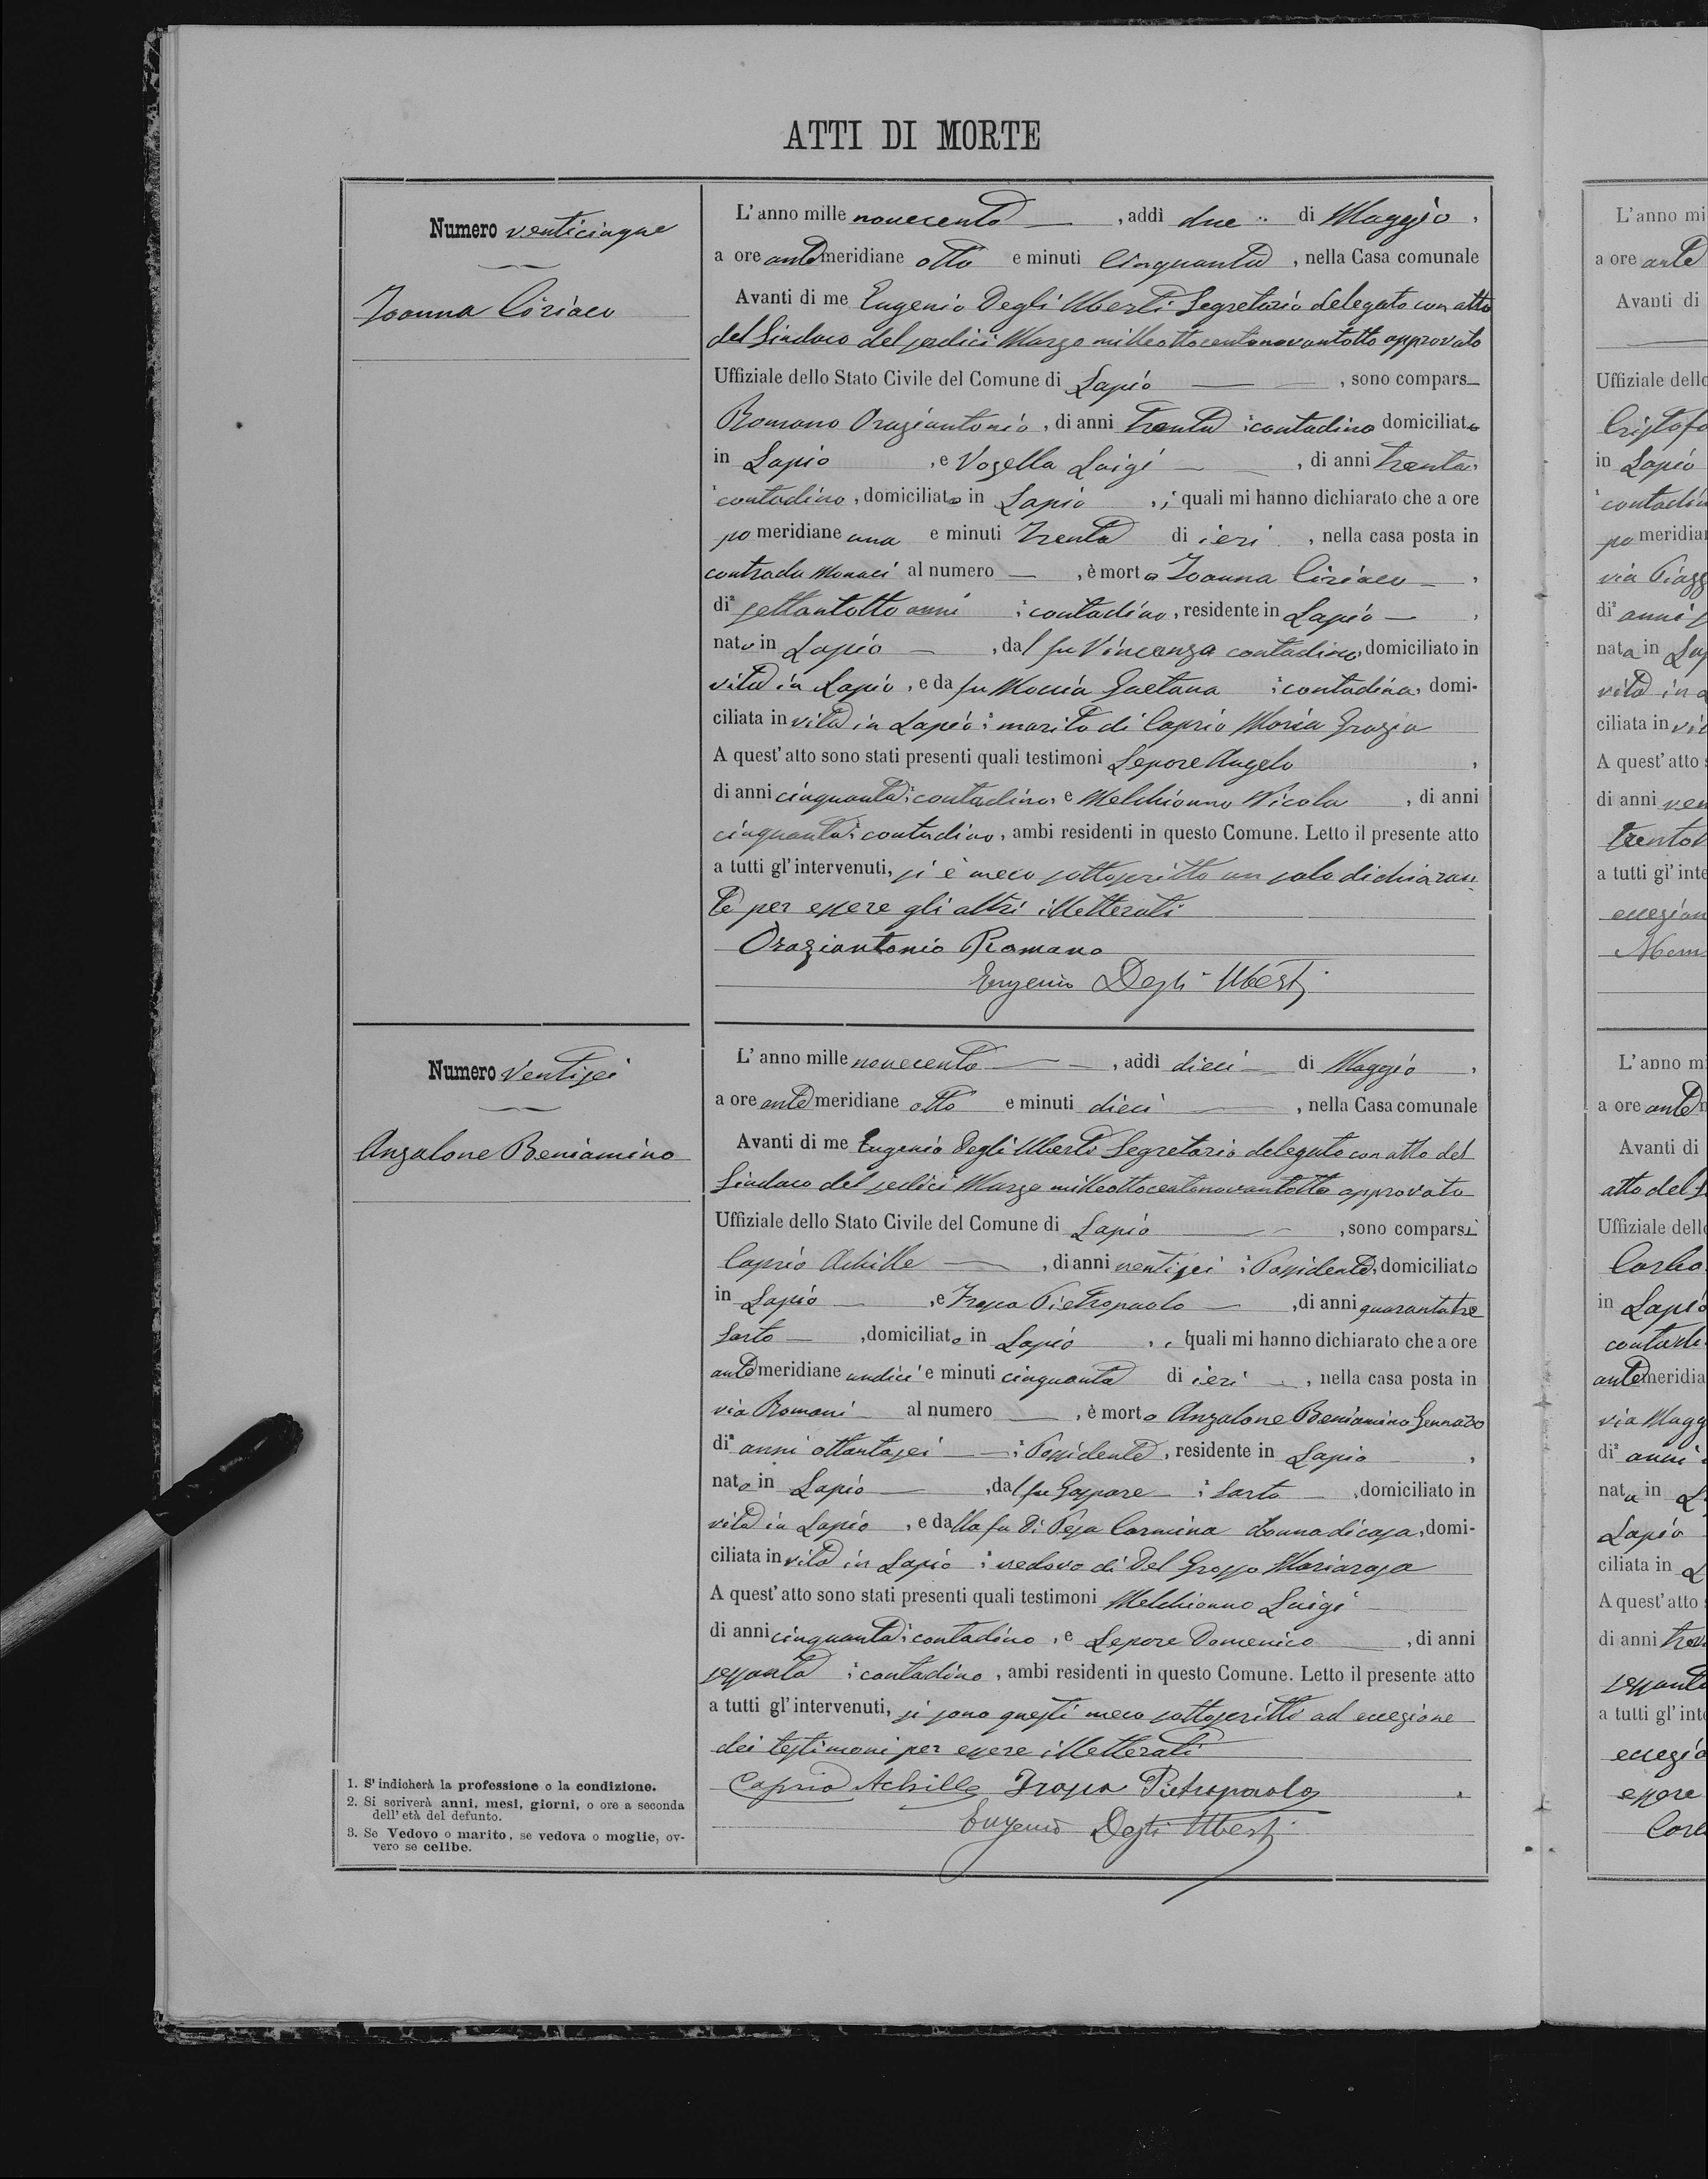 ATTI DI MORTE
Numero venticinque
Ioanna Ciriaco
L'anno mille novecento, addì due di Maggio,
a ore antemeridiane otto e minuti cinquanta, nella Casa comunale
Avanti di me Eugenio Degli Uberti Segretario delegato con atto
del Sindaco del sedici Marzo milleottocentonovantotto approvato
Uffiziale dello Stato Civile del Comune di Lapio, sono compars
Romano Oraziantonio, di anni trenta, contadino domiciliato
in Lapio, e Vozella Luigi, di anni trenta,
contadino, domiciliato in Lapio, i quali mi hanno dichiarato che a ore
pomeridiane una e minuti trenta di ieri, nella casa posta in
contrada Monaci al numero —, è morto Ioanna Ciriaco,
di settantotto anni, contadino, residente in Lapio,
nato in Lapio, dal fu Vincenzo contadino, domiciliato in
vita in Lapio, e da fu Moccia Gaetana, contadina, domi-
ciliata in vita in Lapio, marito di Caprio Maria Grazia
A quest'atto sono stati presenti quali testimoni Lepore Angelo,
di anni cinquanta, contadino, e Melchionno Nicola, di anni
cinquanta, contadino, ambi residenti in questo Comune. Letto il presente atto
a tutti gl'intervenuti, si è meco sottoscritto un solo dichiaran-
te per essere gli altri illetterati
Oraziantonio Romano
Eugenio Degli Uberti
Numero Ventisei
Anzalone Beniamino
L'anno mille novecento, addì dieci di Maggio,
a ore antemeridiane otto e minuti dieci, nella Casa comunale
Avanti di me Eugenio Degli Uberti Segretario delegato con atto del
Sindaco del sedici Marzo milleottocentonovantotto approvato
Uffiziale dello Stato Civile del Comune di Lapio, sono comparsi
Caprio Achille, di anni ventisei, Possidente, domiciliato
in Lapio, e Pietropaolo, di anni quarantatre
Sarto, domiciliato in Lapio, i quali mi hanno dichiarato che a ore
antemeridiane undici e minuti cinquanta di ieri, nella casa posta in
via Romani al numero —, è morto Anzalone Beniamino Gennaro
di anni ottantasei, Possidente, residente in Lapio,
nato in Lapio, dal fu Gaspare, Sarto, domiciliato in
vita in Lapio, e dalla fu Di Pesa Carmina donna di casa, domi-
ciliata in vita in Lapio, vedovo di Del Grosso Mariarosa
A quest'atto sono stati presenti quali testimoni Melchionno Luigi
di anni cinquanta, contadino, e Lepore Domenico, di anni
sessanta, contadino, ambi residenti in questo Comune. Letto il presente atto
a tutti gl'intervenuti, si sono questi meco sottoscritti ad eccezione
dei testimoni per essere illetterati
Caprio Achille Pietropaolo
Eugenio Degli Uberti
1. S'indicherà la professione o la condizione.
2. Si scriverà anni, mesi, giorni, o ore a seconda
dell'età del defunto.
3. Se Vedovo o marito, se vedova o moglie, ov-
vero se celibe.
L'anno mi
a ore ante
Avanti di
Uffiziale dello
Cristofo
in Lapio
contadin
pomeridian
via Piazz
di anni
nata in Lap
vita in
ciliata in
A quest'atto
di anni ven
trent
a tutti gl'inte
eccezion
L'anno m
a ore ante
Avanti di
atto del
Uffiziale dell
in Lapio
antemeridia
via Magg
di anni
nata in
Lapio
ciliata in
A quest'atto
di anni
sessant
a tutti gl'int
eccezio
essere